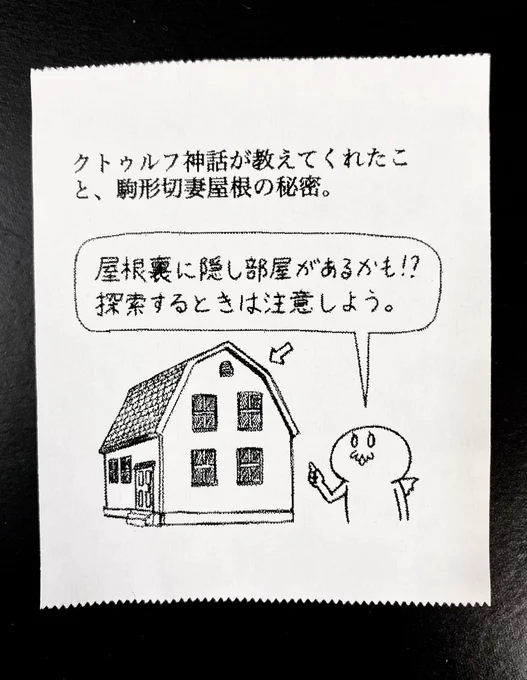 クトゥルフ神話が教えてくれたこ
と、駒形切妻屋根の秘密。
屋根裏に隠し部屋があるかも!?
探索するときは注意しよう。